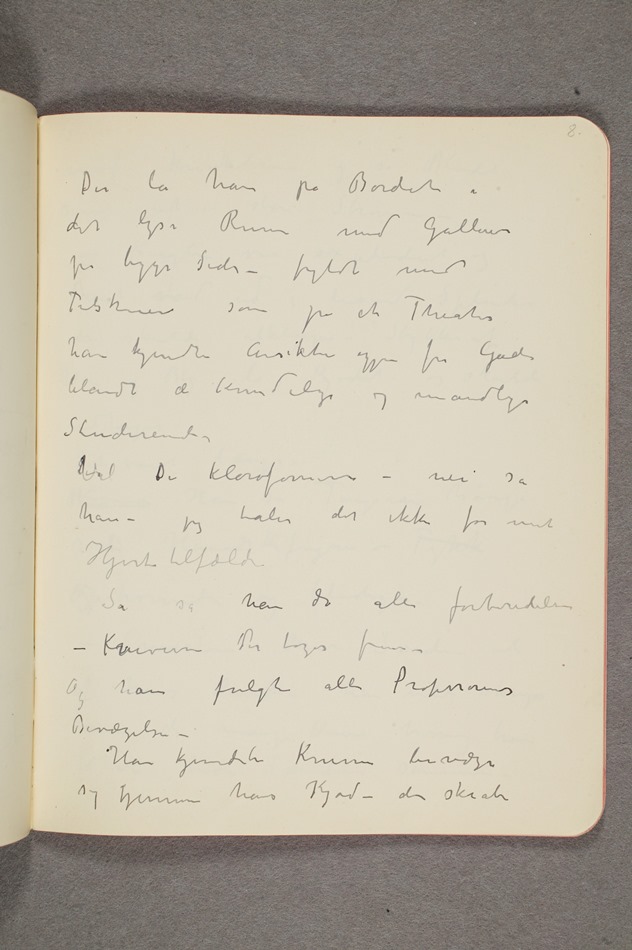 8.
Der la han på Bordet i
det lyse Rum med Gallerier
på begge Sider – fyldt med
Tilskuere som på et Theater
han kjendte Ansikter oppe fra Gade
blandt de kvindelige og mandlige
Studerende
Vil De kloroformeres – nei sa
han – jeg tåler det ikke for mit
Hjertetilfælde
Så så han da alle forberedelser
– Knivene der toges frem –
Og han fulgte alle Professorens
Bevægelser –
Han kjendte Kniven bevæge
sig gjennem hans Kjød – der skrabe